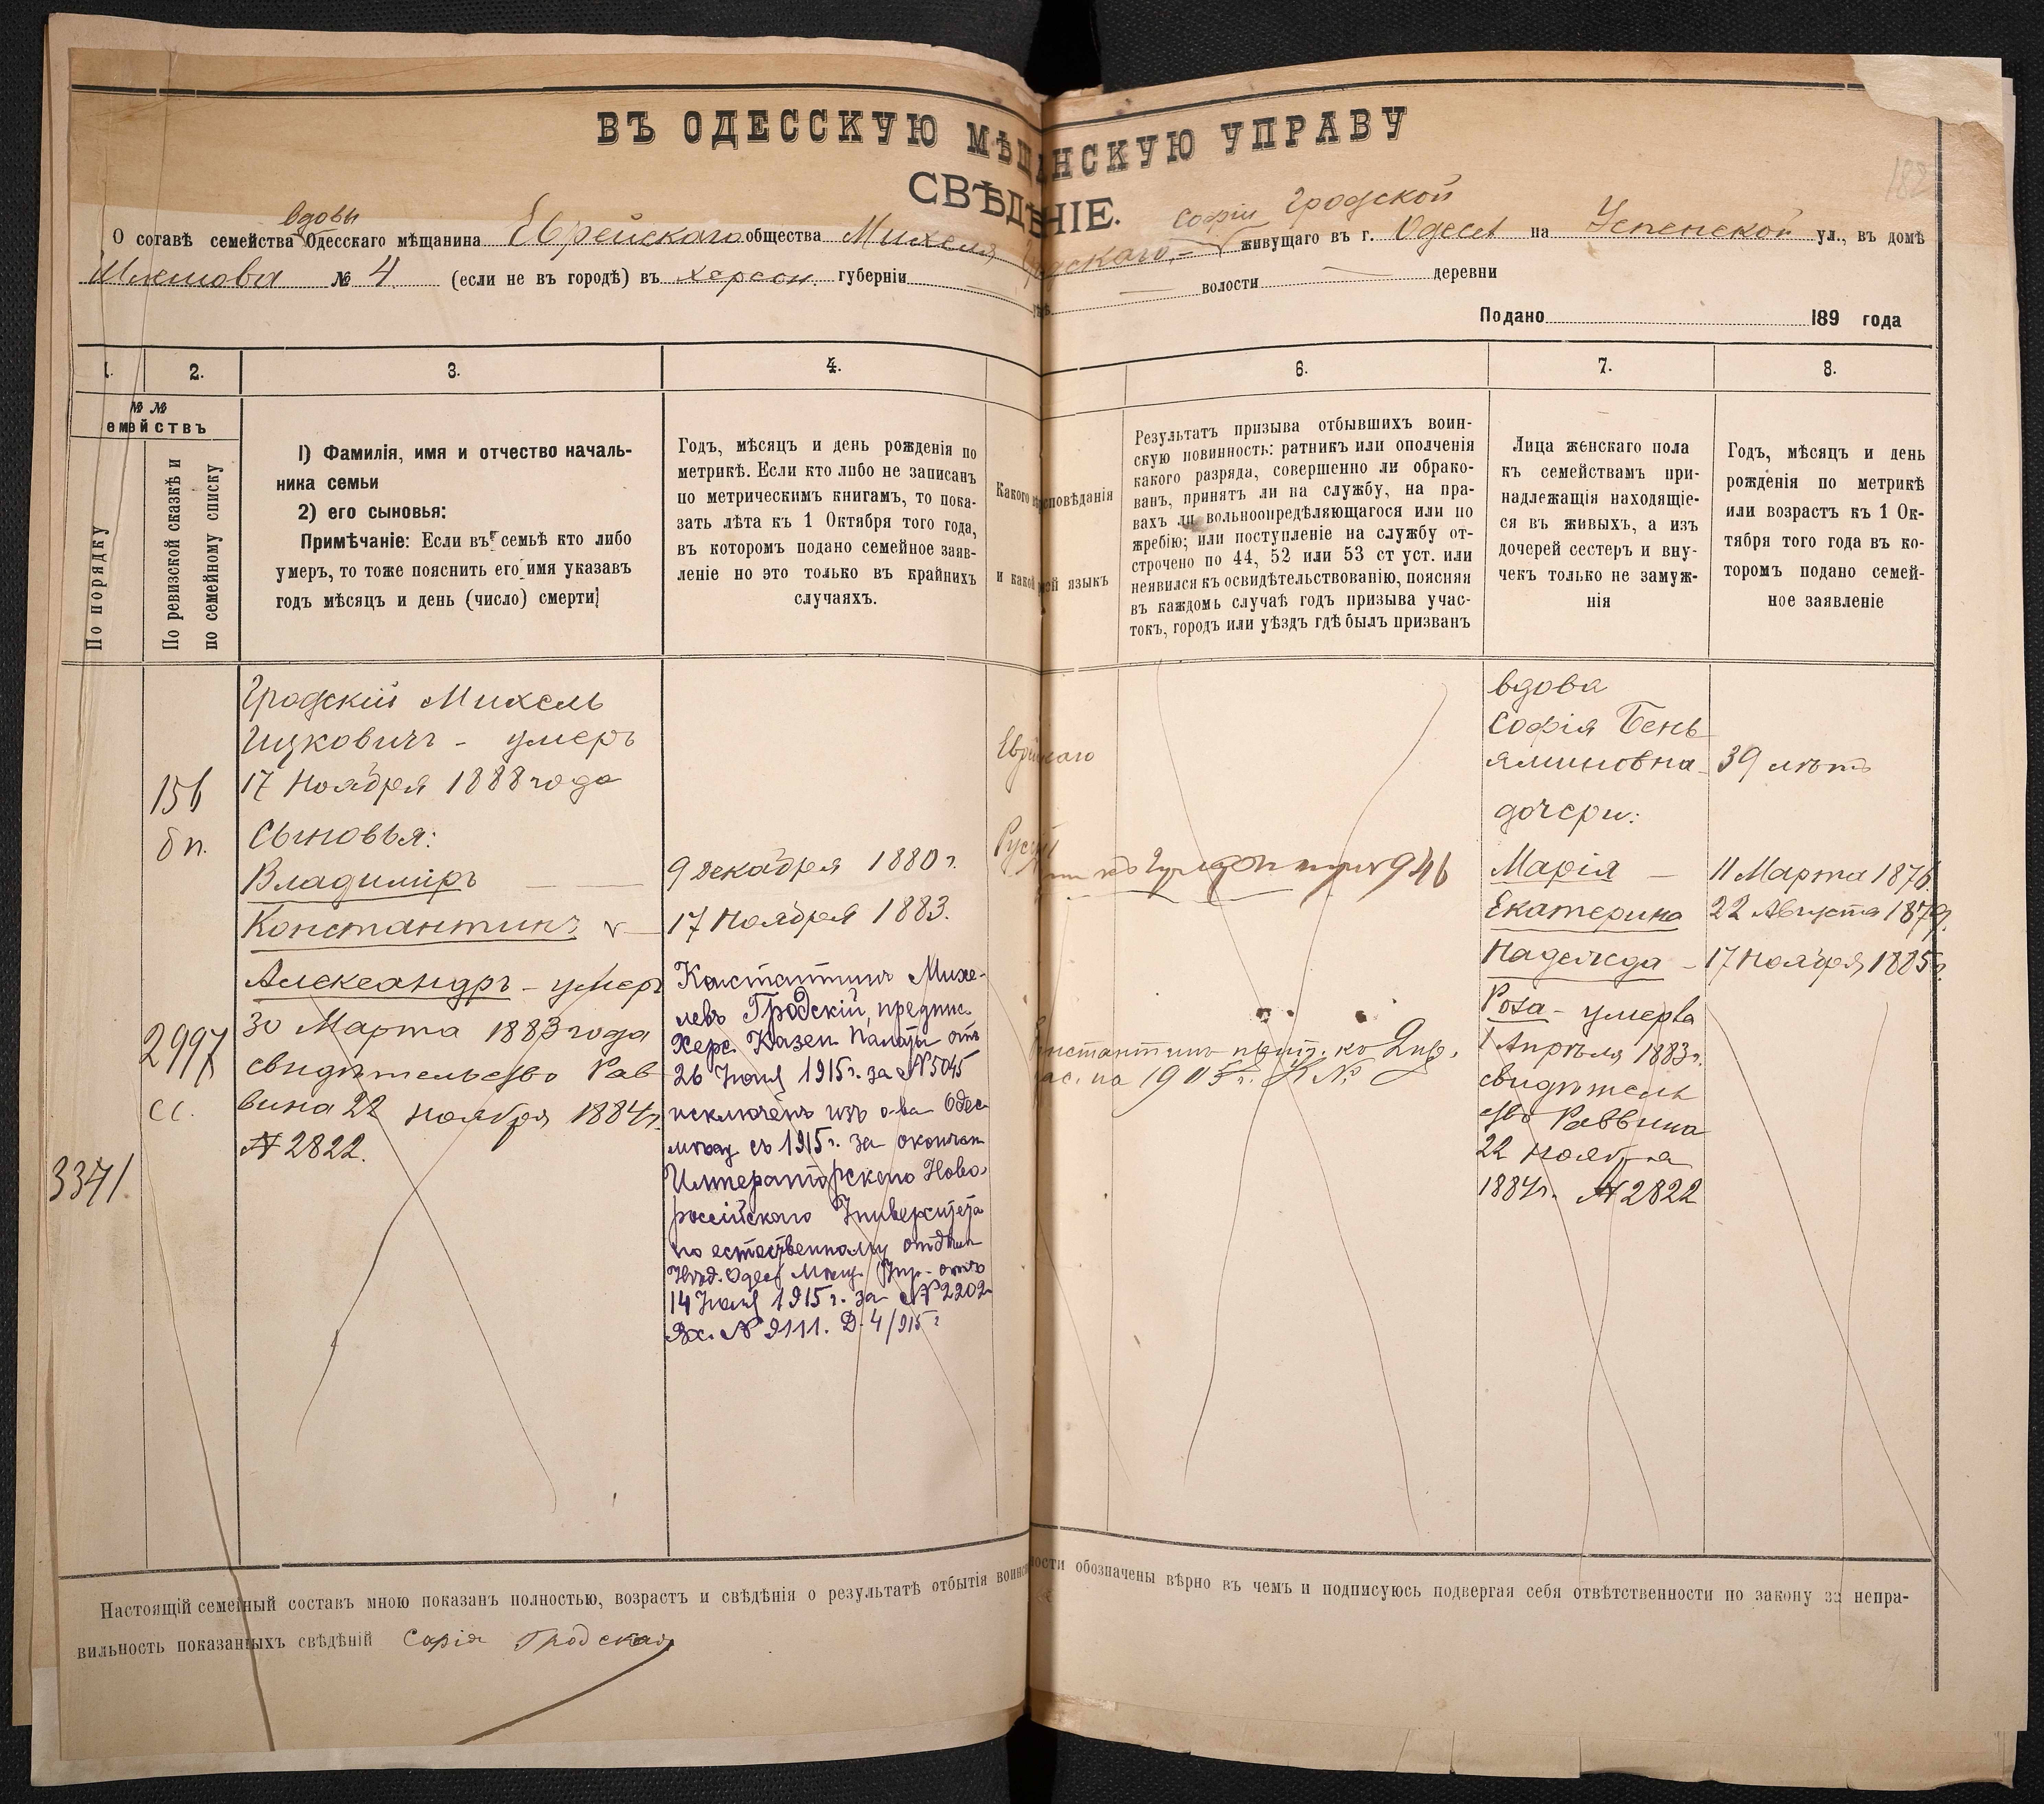 ВЪ ОДЕССКУЮ МѢЩАНСКУЮ УПРАВУ
182
СВѢДѢНІЕ.
вдовы
Софіи Гродской
О сотавѣ семейства Одесскаго мѣщанина Еврейскаго общества Михеля Гродскаго, живущаго въ г. Одессѣ на Успенской ул., въ домѣ
№ 4. (если не въ городѣ) въ Херсон. губерніи волости деревни
Подано 189 года
1. 2. 3. 4. 6. 7. 8.
№№
семействъ
По порядку
По ревизской сказкѣ и
по семейному списку
1) Фамилія, имя и отчество началь-
ника семьи
2) его сыновья:
Примѣчаніе: Если въ семьѣ кто либо
умеръ, то тоже пояснить его имя указавъ
годъ мѣсяцъ и день (число) смерти
Годъ, мѣсяцъ и день рожденія по
метрикѣ. Если кто либо не записанъ
по метрическимъ книгамъ, то пока-
зать лѣта къ 1 Октября того года,
въ которомъ подано семейное заяв-
леніе но это только въ крайнихъ
случаяхъ.
Какого исповѣданія
и какой языкъ
Результатъ призыва отбывшихъ воин-
скую повинность: ратникъ или ополченія
какого разряда, совершенно ли обрако-
ванъ, принятъ ли на службу, на пра-
вахъ ли вольноопредѣляющагося или по
жребію; или поступленіе на службу от-
строчено по 44, 52 или 53 ст уст. или
неявился къ освидѣтельствованію, поясняя
въ каждомъ случаѣ годъ призыва учас-
токъ, городъ или уѣздъ гдѣ былъ призванъ
Лица женскаго пола
къ семействамъ при-
надлежащія находящіе-
ся въ живыхъ, а изъ
дочерей сестеръ и вну-
чекъ только не замуж-
нія
Годъ, мѣсяцъ и день
рожденія по метрикѣ
или возрастъ къ 1 Ок-
тября того года въ ко-
торомъ подано семей-
ное заявленіе
156
бп.
2997
сс.
3371
Гродскій Михель
Ицковичъ - умеръ
17 Ноября 1888 года
Сыновья:
Владиміръ
Константинъ
Александръ - умеръ
30 Марта 1883 года
свидѣтельство Рав
вина 22 ноября 1884г.
№ 2822.
9 Декабря 1880 г.
17 Ноября 1883.
Константинъ Михе-
левъ Гродскій, предпис.
Херс. Казен. Палаты отъ
26 Іюня 1915 г. за № 5045
исключенъ изъ о-ва Одес
мѣщ съ 1915 г. за окончан
Императорскаго Ново-
россійскаго Университета
по естественному отдѣлен
Одес Мѣщ. Упр. отъ
14 Іюля 1915 г. за № 2202
Вх. № 9111. Д. 4/915 г
Еврейскаго
Русскій
Константинъ къ
на 1905 г. №
вдова
Софія Бень
яминовна 39 лѣтъ
дочери:
Марія - 11 Марта 1876.
Екатерина 22 Августа 1879.
Надежда - 17 Ноября 1885г.
Роза - умерла
1 Апрѣля 1883г.
свидѣтель
ство Раввина
22 Ноября
1884г. № 2822
Настоящій семейный составъ мною показанъ полностью, возрастъ и свѣдѣнія о результатѣ отбытія воинской повинности обозначены вѣрно въ чемъ и подписуюсь подвергая себя отвѣтственности по закону за непра-
вильность показанныхъ свѣдѣній Софія Гродская